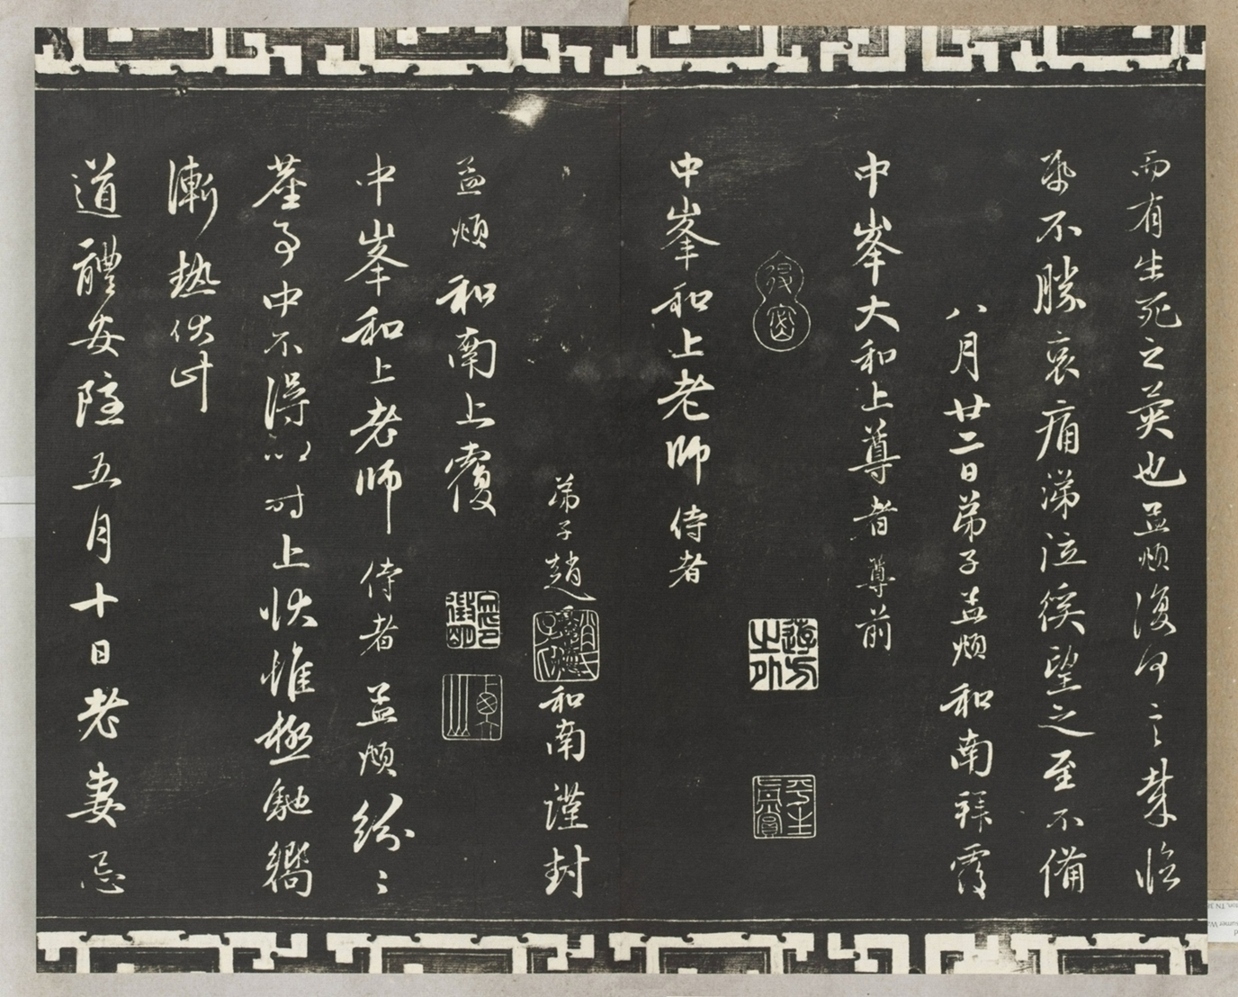 而有生死之異也孟頫復何言〻葬临
紙不勝哀痛涕泣徯望之至不備
八月廿二日弟子孟頫和南拜覆
中峯大和上尊者尊前
中峯和上老師侍者
弟子趙 和南謹封
孟頫和南上覆
中峯和上老師侍者孟頫紛〻
塵事中不得以時上狀惟極馳嚮
漸熱伏計
道體安隱五月十日老妻忌